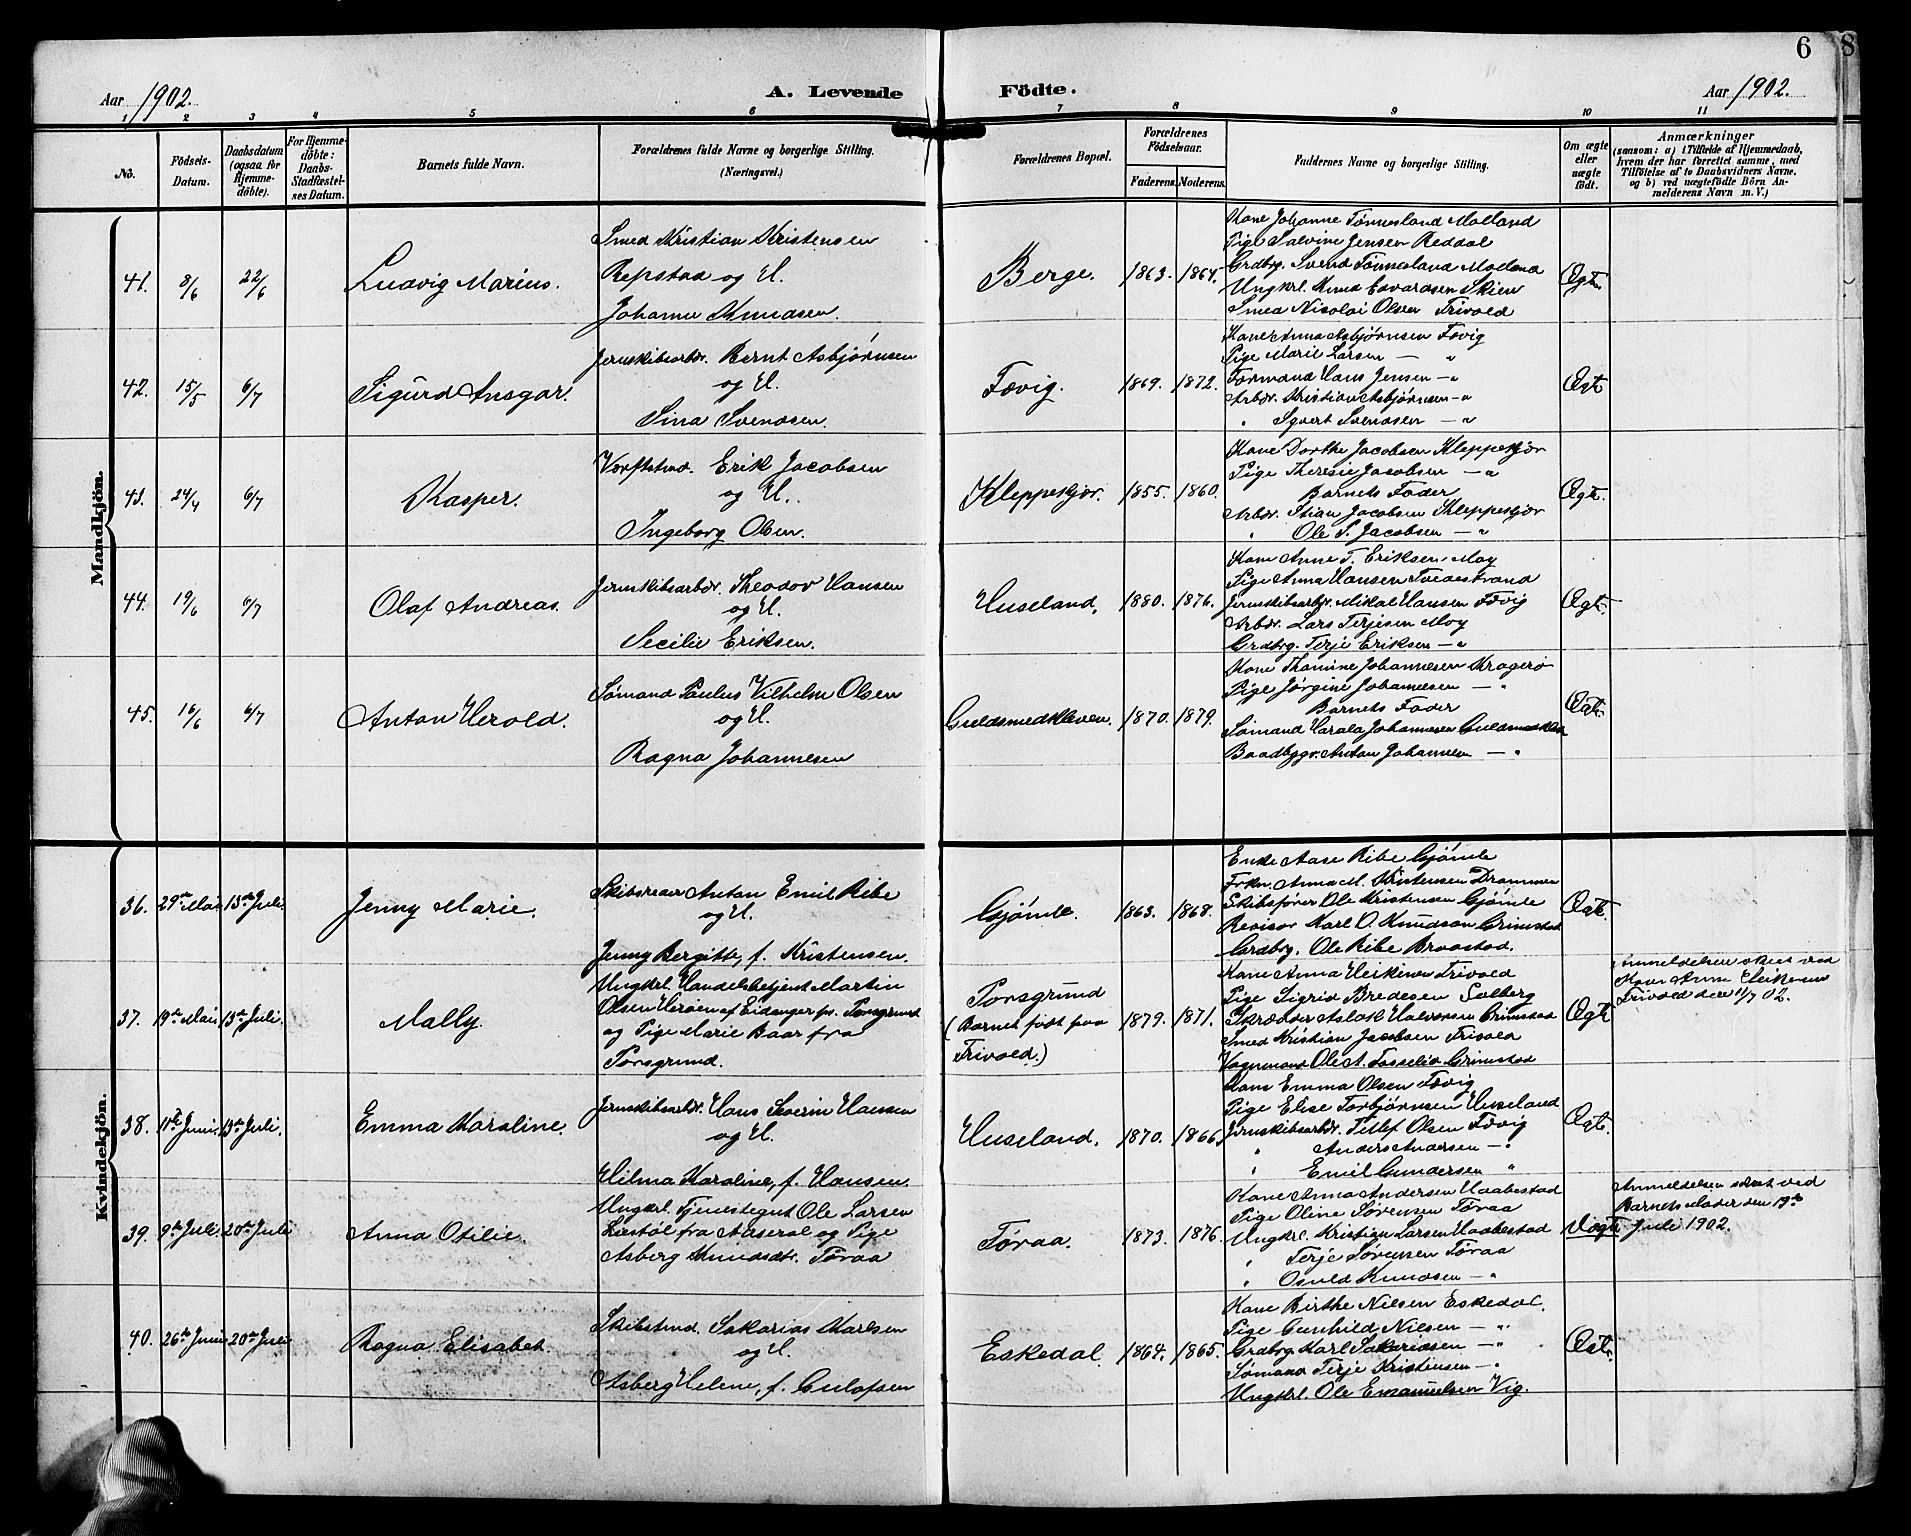 6
8
Aar 1902.
A. Levende Födte.
Aar 1902.
1 2 3 4 5 6 7 8 9 10 11
No.
Födsels-Datum.
Daabsdatum (ogsaa for Hjemme-döbte).
For Hjemme-döbte: Daabs-Stadfæstel-ses Datum.
Barnets fulde Navn.
Forældrenes fulde Navne og borgerlige Stilling.
(Næringsvei.)
Forældrenes Bopæl.
Forældrenes Födselsaar.
Faderens. Moderens.
Faddernes Navne og borgerlige Stilling.
Om ægte eller uægte födt.
Anmærkninger
(saasom: a) i Tilfælde af Hjemmedaab,
hvem der har forrettet samme, med
Tilföielse af to Daabsvidners Navne,
og b) ved uægtefödte Börn An-
melderens Navn m. V.)
Mandkjön.
41. 8/6 22/6 Ludvig Marius.
Smed Kristian Kristensen
Repstad og H.
Johanne Knudsen.
Berge. 1863. 1864.
Kone Johanne Tønnesland Molland
Pige Salvine Jensen Reddal
Grdbrg. Svend Tønnesland Molland
Ungkrl. Knud Edvardsen Skien
Smed Nicolai Olsen Trivold
Ægte.
42. 15/5 6/7 Sigurd Ansgar.
Jernskibsarbdr. Bernt Asbjørnsen
og H.
Sina Svendsen.
Fævig. 1869. 1872.
Kone Anna Asbjørnsen Fævig
Pige Marie Larsen — "
Formand Hans Jensen — "
Arbdr. Kristian Asbjørnsen — "
" Syvert Svendsen — "
Ægte
43. 24/4 6/7 Kasper.
Værftstmd. Erik Jacobsen
og H.
Ingeborg Olsen.
Kleppekjær. 1855. 1860.
Kone Dorthe Jacobsen Kleppekjær
Pige Theresie Jacobsen — "
Barnets Fader
Arbdr. Stian Jacobsen Kleppekjær
" Ole S. Jacobsen — "
Ægte.
44. 19/6 6/7 Olaf Andreas.
Jernskibsarbdr. Theodor Hansen
og H.
Secilie Eriksen.
Huseland. 1880. 1876.
Kone Anne T. Eriksen Moy
Pige Anna Hansen Tvedestrand
Jernskibsarbdr. Mikal Hansen Fævig
Arbdr. Lars Terjesen Moy
Grdbrg. Terje Eriksen — "
Ægte.
45. 16/6 6/7 Anton Herold.
Sømand Paulus Vilhelm Olsen
og H.
Ragna Johannesen
Guldsmedkleven. 1870. 1879.
Kone Thomine Johannesen Kragerø
Pige Jørgine Johannesen — "
Barnets Fader
Sømand Harald Johannesen Guldsmedklev
Baadbyggr. Anton Johannesen — "
Ægte.
Kvindekjön.
36. 29de Mai 13de Juli. Jenny Marie.
Skibsreder Anton Emil Ribe
og H.
Jenny Bergitte, f. Kristensen.
Gjømle. 1863. 1868.
Enke Aase Ribe Gjømle
Frkn. Anna M. Kristensen Drammen
Skibsfører Ole Kristensen Gjømle
Revisor Karl O. Knudson Grimstad
Grdbrg. Ole Ribe Braastad.
Ægte.
37. 19de Mai 13de Juli. Mally.
Ungkrl. Handelsbetjent Martin
Olsen Herøen af Eidanger ps. Porsgrund
og Pige Marie Baar fra
Porsgrund.
Porsgrund
(Barnet født paa
Trivold.)
1879. 1871.
Kone Anna Trivold
Pige Sigrid Bredesen Solberg
Skrædder Aslak Halvorsen Grimstad
Smed Kristian Jacobsen Trivold
Vognmand Ole A. Fosselid Grimstad
Ægte
Anmeldelsen skeet ved
Kone Anna
Trivold den 11/7 02.
38. 11te Juni. 13de Juli. Emma Karoline.
Jernskibsarbdr. Hans Severin Hansen
og H.
Hilma Karoline, f. Hansen.
Huseland. 1870. 1866.
Kone Emma Olsen Fævig
Pige Elise Torbjørnsen Huseland
Jernskibsarbdr. Tellef Olsen Fævig
" Anders Andersen — "
" Emil Gundersen "
Ægte.
39. 9de Juli. 20de Juli Anna Otilie.
Ungkrl. Tjenestegut Ole Larsen
Liestøl fra Aaseral og Pige
Asberg Knudsdtr. Tøraa
Tøraa. 1873. 1876.
Kone Anna Andersen Haabestad
Pige Oline Sørensen Tøraa
Ungkrl. Kristian Larsen Haabestad
" Terje Sørensen Tøraa
" Osuld Knudsen — "
Uægte
Anmeldelsen skeet ved
Barnets Moder den 19de
Juli 1902.
40. 26de Juni 20de Juli Ragna Elisabet.
Skibstmd. Sakarias Karlsen
og H.
Asberg Helene, f. Gulofsen
Eskedal. 1864. 1865.
Kone Birthe Nilsen Eskedal.
Pige Gunhild Nilsen — "
Grdbrg. Karl Sakariasen — "
Sømand Terje Kristensen — "
Ungkrl. Ole Emanuelsen Vig.
Ægte.